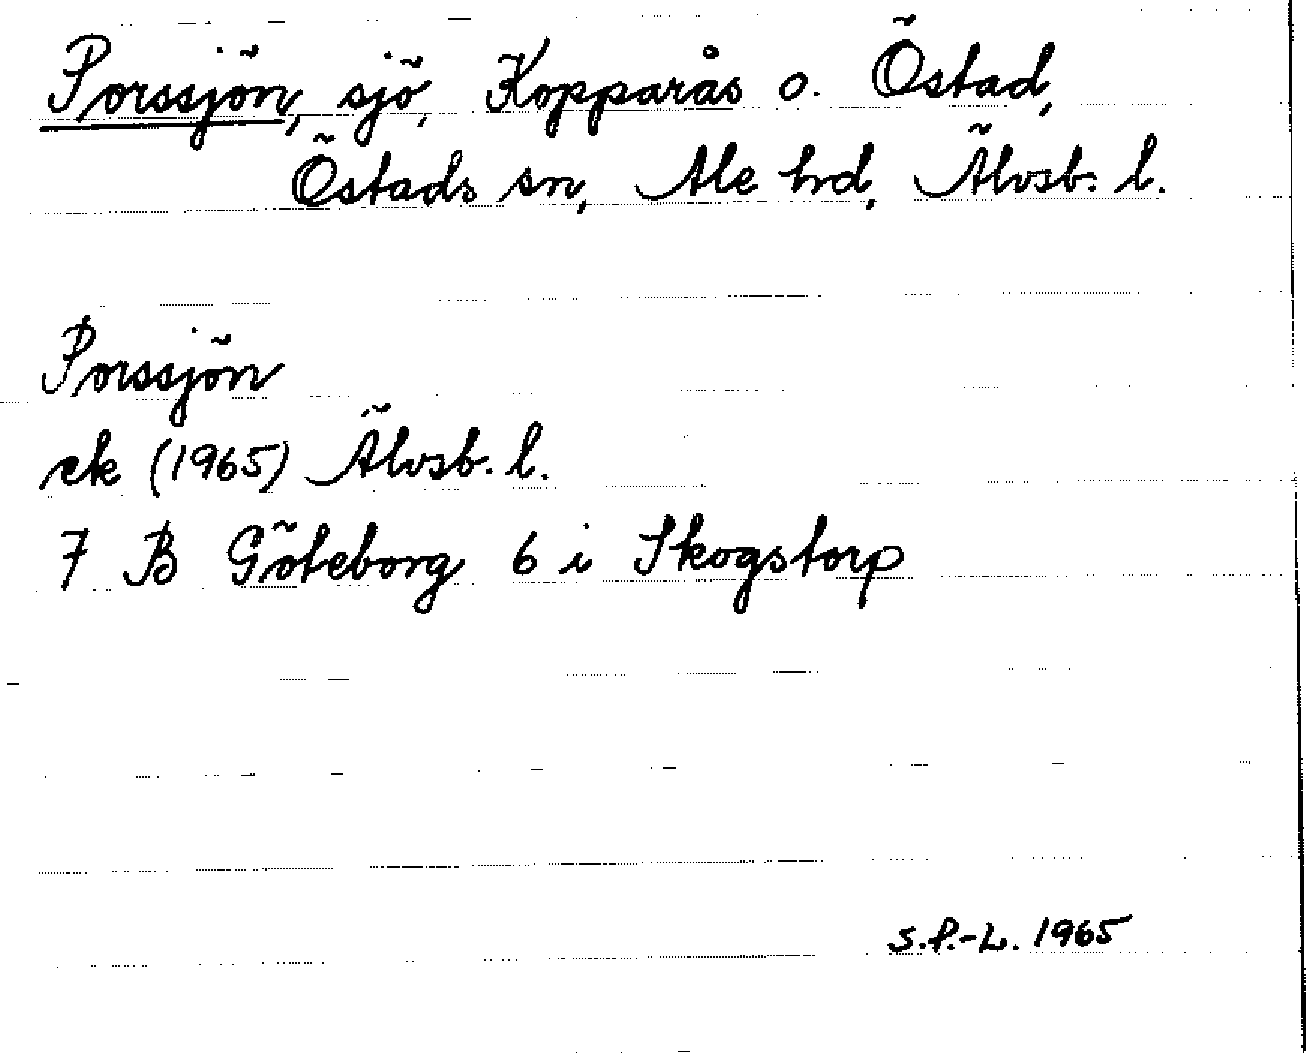 Porssjön, sjö, Kopparås o. Östad,
Östads sn, Ale hrd, Älvsb. l.
Porssjön
ek (1965) Älvsb. l.
7 B Göteborg 6 i Skogstorp
S.P.-L. 1965